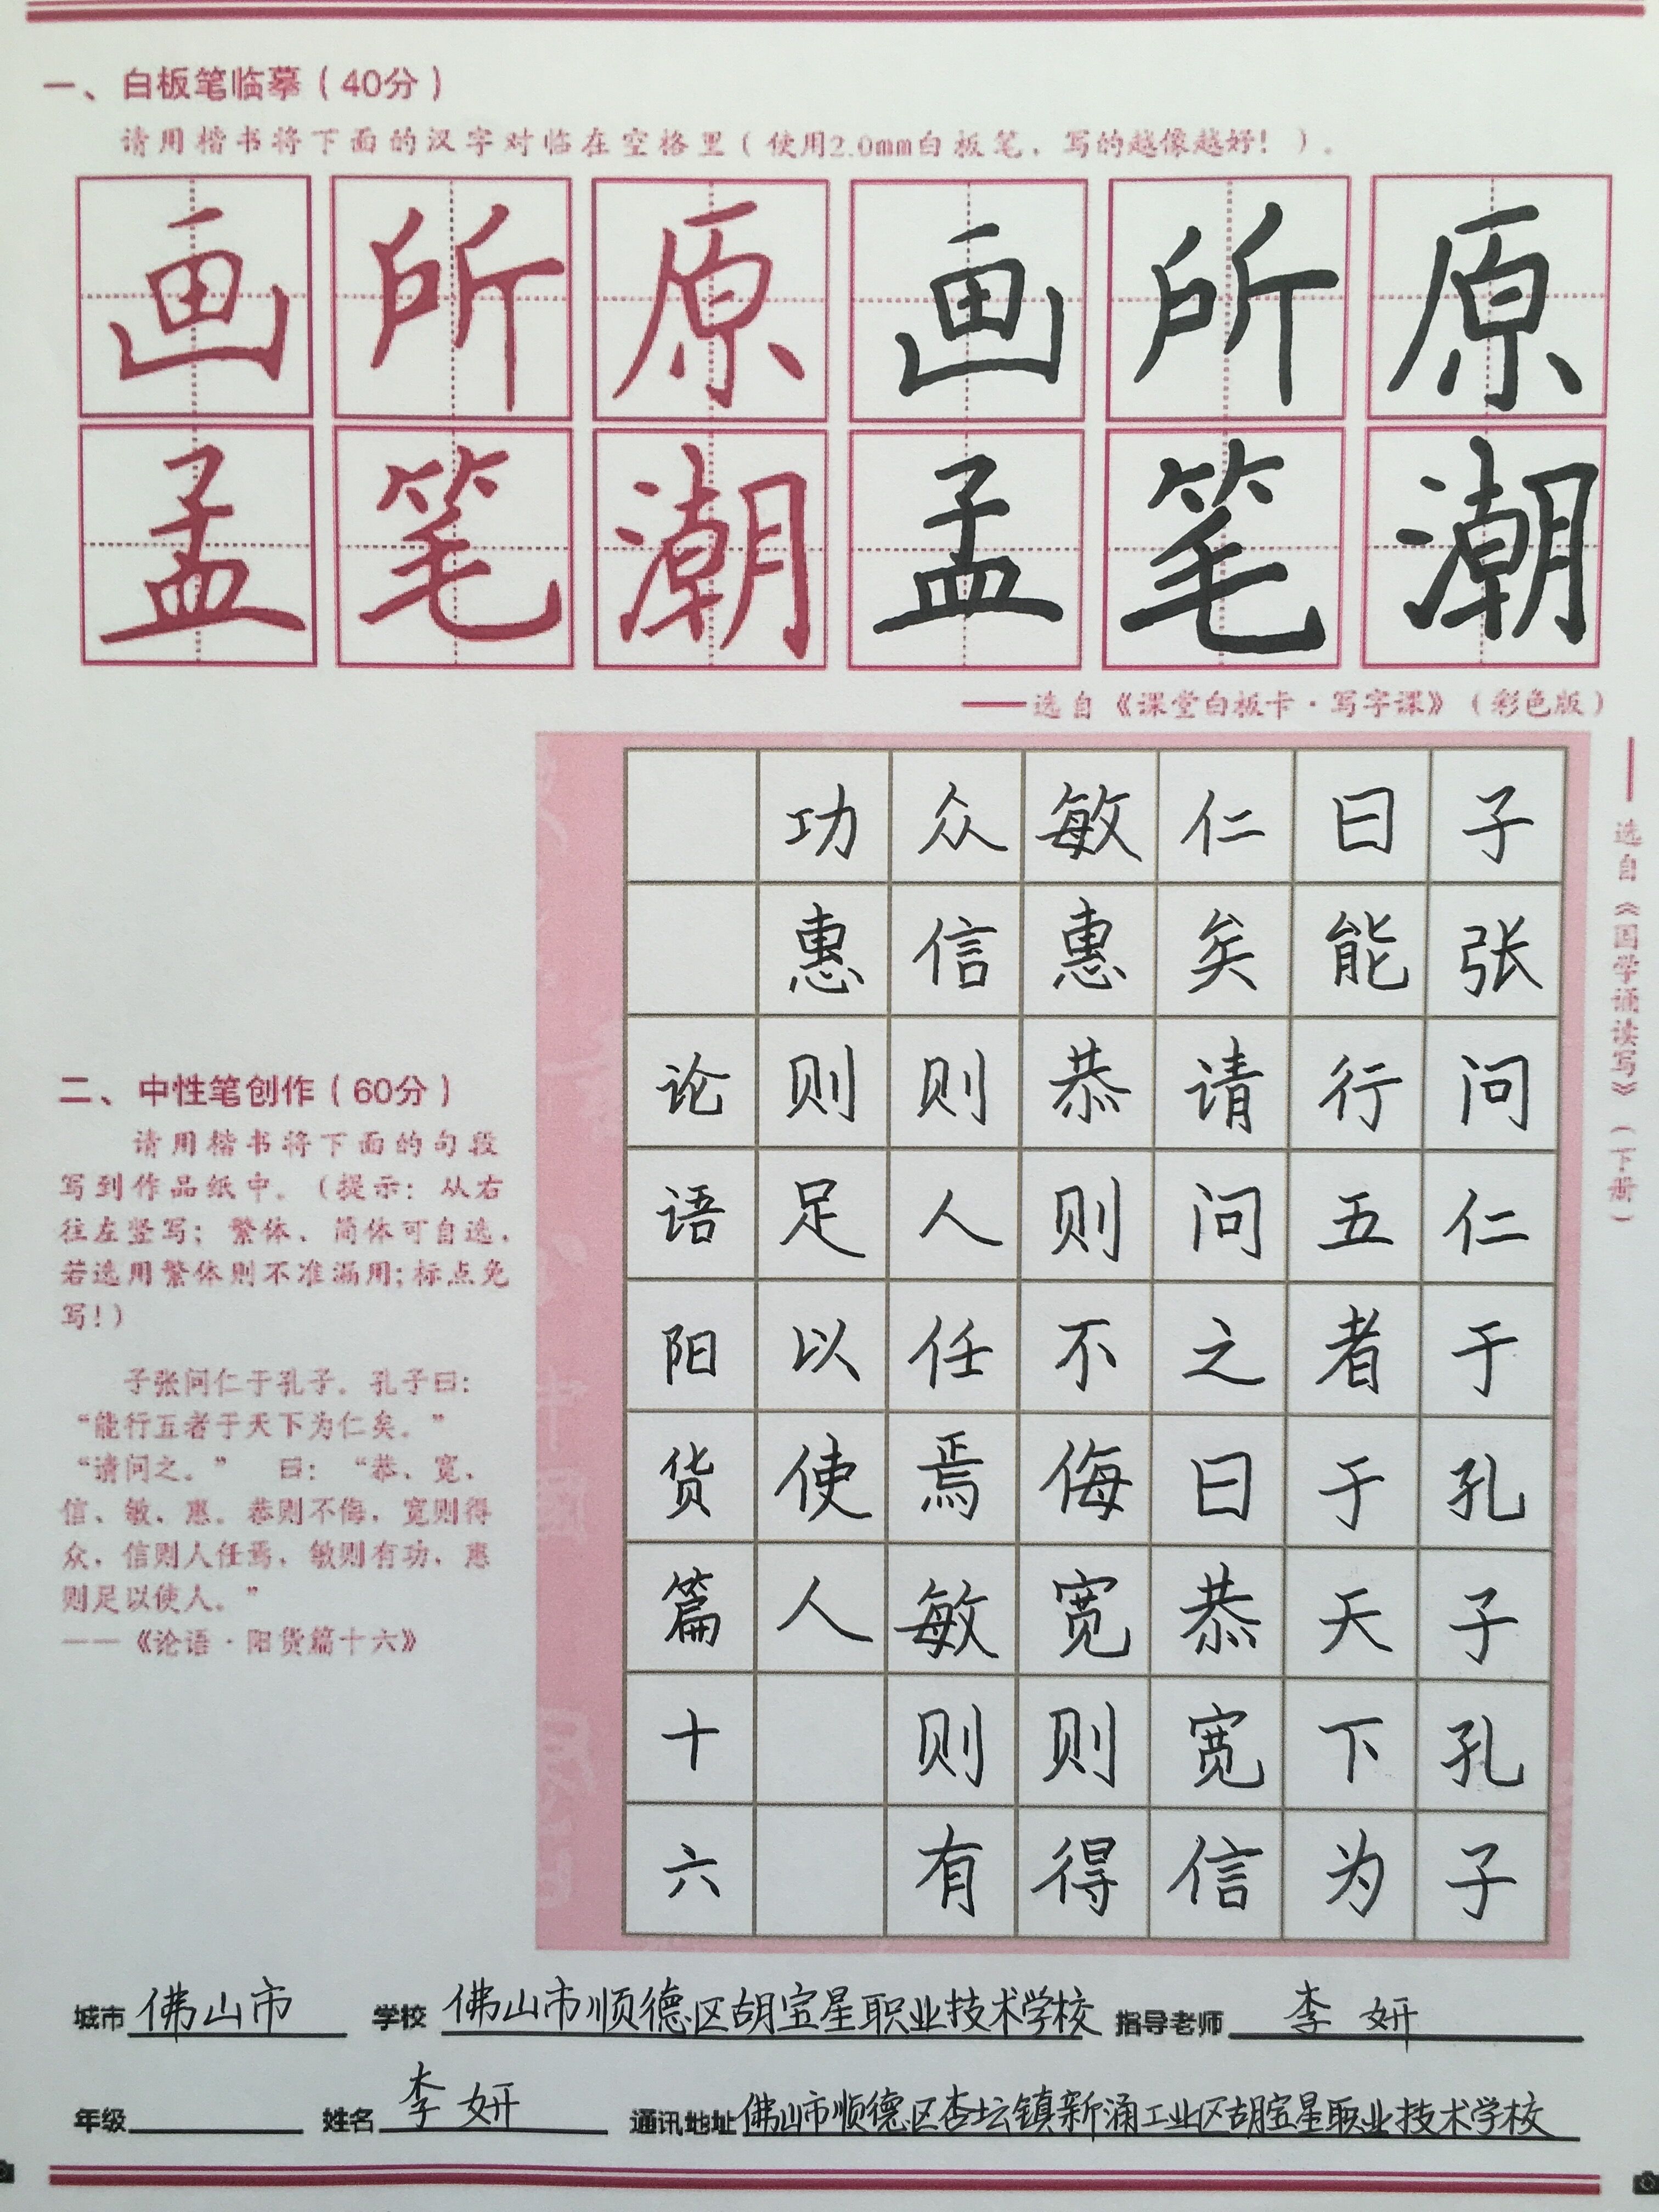 一、白板笔临摹（40分）
请用楷书将下面的汉字对临在空格里（使用2.0mm白板笔，写的越像越好！）。
画所原画所原
孟笔潮孟笔潮
——选自《课堂白板卡·写字课》（彩色版）
——选自《国学诵读写》（下册）
二、中性笔创作（60分）
请用楷书将下面的句段
写到作品纸中。（提示：从右
往左竖写；繁体、简体可自选，
若选用繁体则不准漏用；标点免
写！）
子张问仁于孔子。孔子曰：
“能行五者于天下为仁矣。”
“请问之。” 曰：“恭、宽、
信、敏、惠。恭则不侮，宽则得
众，信则人任焉，敏则有功，惠
则足以使人。”
——《论语·阳货篇十六》
子张问仁于孔子孔子
曰能行五者于天下为
仁矣请问之曰恭宽信
敏惠恭则不侮宽则得
众信则人任焉敏则有
功惠则足以使人
论语阳货篇十六
城市 佛山市 学校 佛山市顺德区胡宝星职业技术学校 指导老师 李妍
年级 姓名 李妍 通讯地址 佛山市顺德区杏坛镇新涌工业区胡宝星职业技术学校